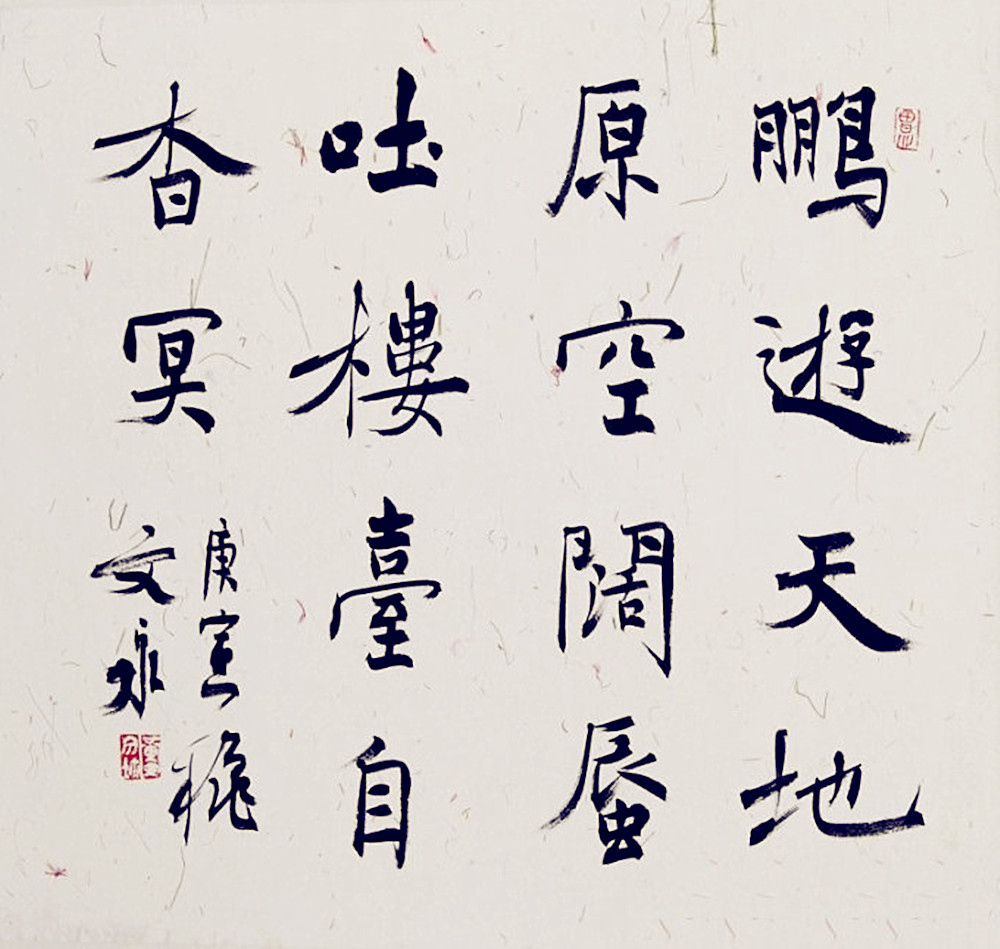 鵬遊天地
原空闊蜃
吐樓臺自
杳冥
庚寅
文